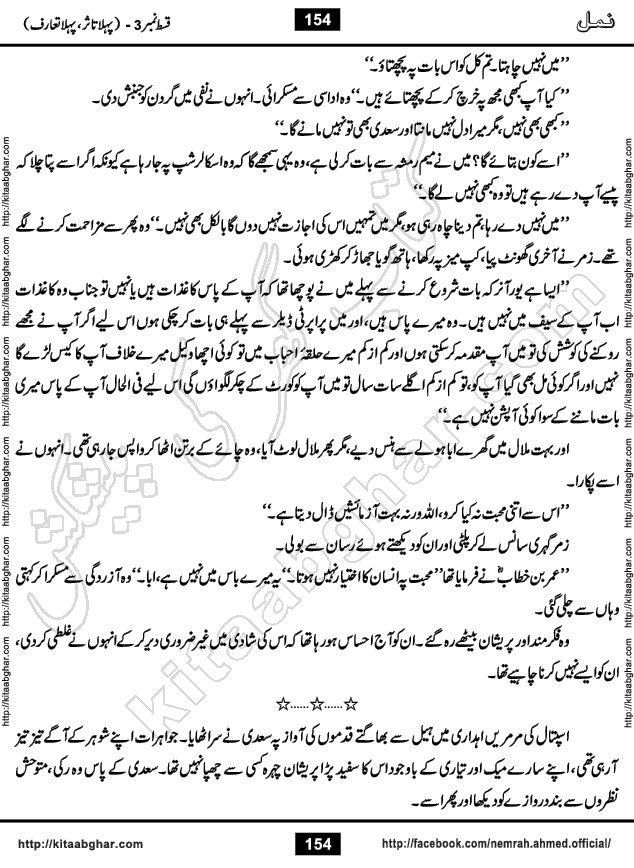 نمل 154 قسط نمبر 3 - (پہلا تاثر، پہلا تعارف)
’’میں نہیں چاہتا۔ تم کل کو اس بات پہ پچھتاؤ۔‘‘
’’کیا آپ کبھی مجھ پہ خرچ کر کے پچھتائے ہیں۔‘‘ وہ اداسی سے مسکرائی۔ انہوں نے نفی میں گردن کو جنبش دی۔
’’کبھی بھی نہیں، مگر میرا دل نہیں مانتا اور سعدی بھی تو نہیں مانے گا۔‘‘
’’اسے کون بتائے گا؟ میں نے میم رمشہ سے بات کر لی ہے، وہ یہی سمجھے گا کہ وہ اسکالرشپ پہ جا رہا ہے کیونکہ اگر اسے پتا چلا کہ
پیسے آپ دے رہے ہیں تو وہ کبھی نہیں لے گا۔‘‘
’’میں نہیں دے رہا، تم دینا چاہ رہی ہو، مگر میں تمہیں اس کی اجازت نہیں دوں گا بالکل بھی نہیں۔‘‘ وہ پھر سے مزاحمت کرنے لگے
تھے۔ زمر نے آخری گھونٹ پیا، کپ میز پہ رکھا، ہاتھ گویا جھاڑ کر کھڑی ہوئی۔
’’ایسا ہے یور آنر کہ بات شروع کرنے سے پہلے میں نے پوچھا تھا کہ آپ کے پاس کاغذات ہیں یا نہیں تو جناب وہ کاغذات
اب آپ کے سیف میں نہیں ہیں۔ وہ میرے پاس ہیں، اور میں پراپرٹی ڈیلر سے پہلے ہی بات کر چکی ہوں اس لیے اگر آپ نے مجھے
روکنے کی کوشش کی تو میں آپ پہ مقدمہ کر سکتی ہوں اور کم از کم میرے حلقۂ احباب میں تو کوئی اچھا وکیل میرے خلاف آپ کا کیس لڑے گا
نہیں اور اگر کوئی مل بھی گیا آپ کو، تو کم از کم اگلے سات سال تو میں آپ کو کورٹ کے چکر لگواؤں گی اس لیے فی الحال آپ کے پاس میری
بات ماننے کے سوا کوئی آپشن نہیں ہے۔‘‘
اور بہت ملال میں گھرے ابا ہولے سے ہنس دیے، مگر پھر ملال لوٹ آیا، وہ چائے کے برتن اٹھا کر واپس جا رہی تھی۔ انہوں نے
اسے پکارا۔
’’اس سے اتنی محبت نہ کیا کرو، اللہ ورنہ بہت آزمائشیں ڈال دیتا ہے۔‘‘
زمر گہری سانس لے کر پلٹی اور ان کو دیکھتے ہوئے رسان سے بولی۔
’’عمر بن خطابؓ نے فرمایا تھا ’’محبت پہ انسان کا اختیار نہیں ہوتا۔‘‘ یہ میرے بس میں نہیں ہے، ابا۔‘‘ وہ آزردگی سے مسکرا کر کہتی
وہاں سے چلی گئی۔
وہ فکر مند اور پریشان بیٹھے رہ گئے۔ ان کو آج احساس ہو رہا تھا کہ اس کی شادی میں غیر ضروری دیر کر کے انہوں نے غلطی کر دی،
ان کو ایسے نہیں کرنا چاہیے تھا۔
☆......☆......☆
اسپتال کی مرمریں راہداری میں ہیل سے بھاگتے قدموں کی آواز پہ سعدی نے سر اٹھایا۔ جواہرات اپنے شوہر کے آگے تیز تیز
آ رہی تھی، اپنے سارے میک اور تیاری کے باوجود اس کا سفید پڑا پریشان چہرہ کسی سے چھپا نہیں تھا۔ سعدی کے پاس وہ رکی، متوحش
نظروں سے بند دروازے کو دیکھا اور پھر اسے۔
http://kitaabghar.com 154 http://facebook.com/nemrah.ahmed.official/
http://kitaabghar.com http://kitaabghar.com http://kitaabghar.com http://kitaabghar.com http://kitaabghar.com http://kitaabghar.com
http://kitaabghar.com http://kitaabghar.com http://kitaabghar.com http://kitaabghar.com http://kitaabghar.com http://kitaabghar.com
کتاب گھر کی پیشکش
kitaabghar.com